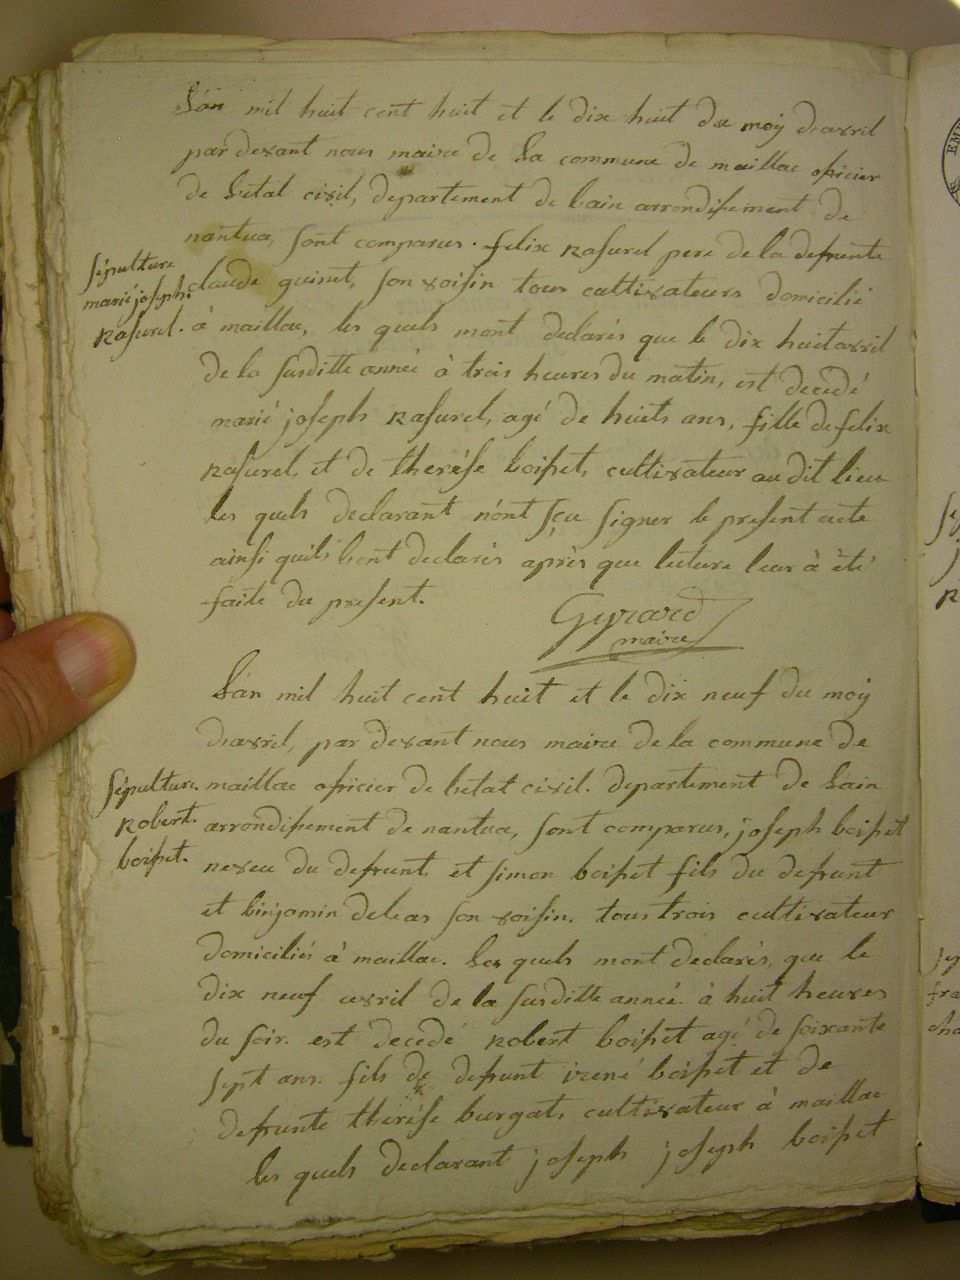 L'an mil huit cent huit et le dix huit du moÿ d'avril
par devant nous maire de La commune de maillac oficier
de L'etat civil, departement de lain arrondissement de
nantua, sont comparus. felix Rasurel pere de la defunte
claude guinet, son voisin tous cultivateurs domicilié
à maillac, les quels mont declarés que le dix huit avril
de la susditte année à trois heures du matin, est decedé
marié joseph Rasurel, agé de huits ans, fille de felix
Rasurel, et de therése boisset, cultivateur au dit lieu
les quels declarant n'ont sçu signer le present acte
ainsi quils l'ont declarés après que lecture leur à été
faite du present.
sépulture
marié joseph.
Rasurel.
Gÿrard
maire
L'an mil huit cent huit et le dix neuf du moÿ
d'avril, par devant nous maire de la commune de
maillac oficier de letat civil. departement de Lain
arrondissement de nantua, sont comparus, joseph boisset
neveu du defunt et simon boisset fils du defunt
et binjamin deleas son voisin. tous trois cultivateur
domiciliés à maillac. Les quels mont declarés, que le
dix neuf avril de la susditte année à huit heures
du soir. est decedé Robert boisset agé de soixante
sept ans. fils de defunt irené boisset et de
defunte therése burgat, cultivateur à maillac
les quels declarant joseph joseph boisset
sépulture
Robert.
boisset.